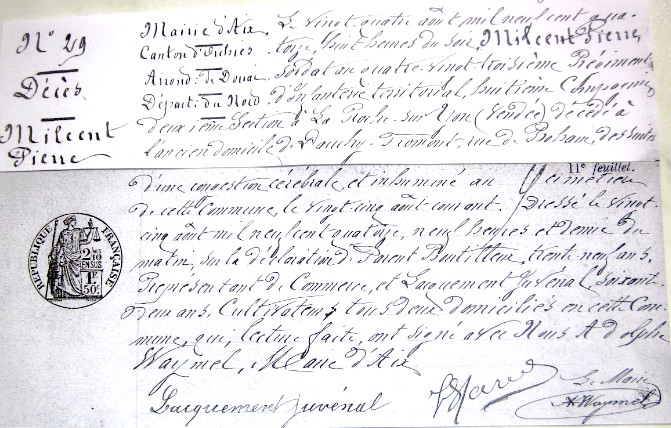 N° 29
Décès
Milcent
Pierre
Mairie d'Aix
Canton d'Orchies
Arrond. de Douai
Départ. du Nord
Le vingt quatre août mil neuf cent qua-
torze, huit heures du soir, Milcent Pierre,
soldat au quatre vingt troisième Régiment
d'Infanterie territorial, huitième Compagnie
deuxième Section à La Roche-sur-Yon (Vendée) décédé à
l'ancien domicile de rue de des suites
11e feuillet.
d'une congestion cérébrale, et inhumé au cimetière
de cette Commune, le vingt cinq août courant. Dressé le vingt
cinq août mil neuf cent quatorze, neuf heures et demie du
matin, sur la déclaration de Parent trente neuf ans,
Représentant de Commerce, et Lacquement Juvénal, soixante
deux ans, Cultivateur, tous deux domiciliés en cette Com-
mune, qui, lecture faite, ont signé avec Nous Adolphe
Waymel, Maire d'Aix
RÉPUBLIQUE FRANÇAISE
2/10
EN SUS
1F
50c
Lacquement Juvénal
Le Maire
A Waymel